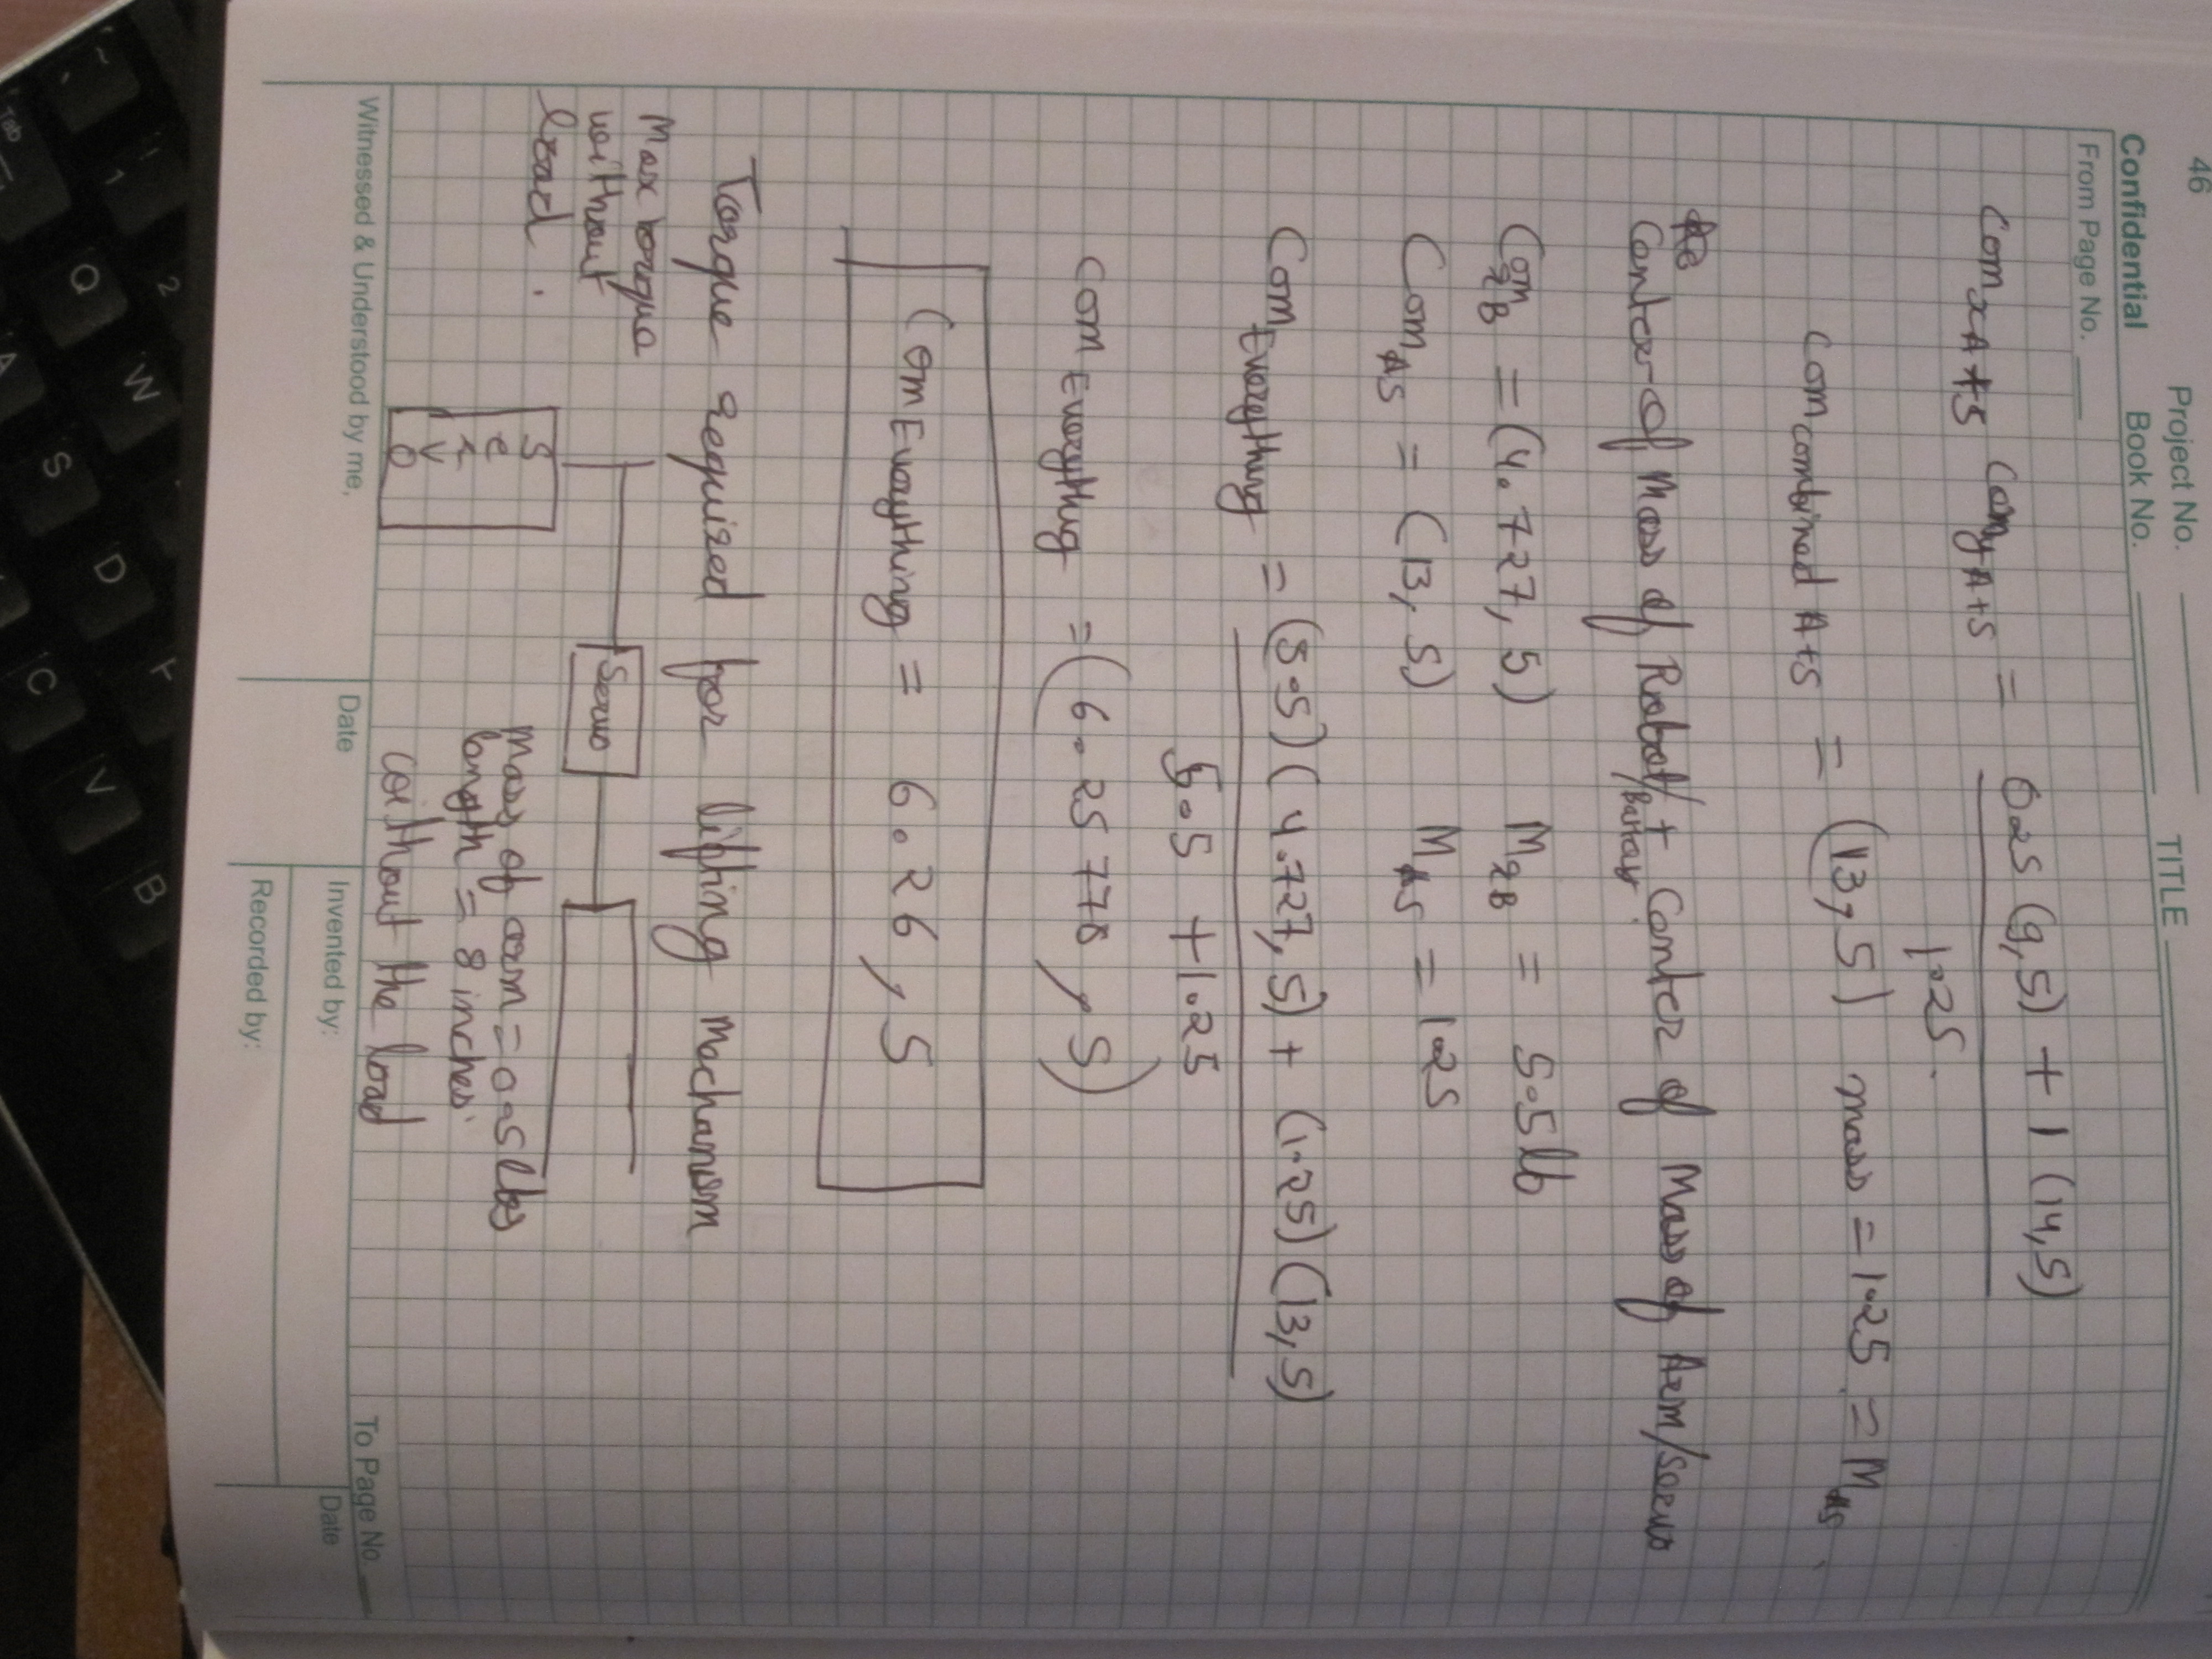 46
Project No.
TITLE
Confidential
Book No.
From Page No.
Comx A+S Comy A+S = 0.25 (9,5) + 1 (14,5)
1.25
Com combined A+S = (13,5) mass = 1.25 = MAS
Center of Mass of Robot/Battery + Center of Mass of Arm/servo
Com2B = (4.727, 5) M2B = 5.5lb
ComAS = (13, 5) MAS = 1.25
Com Everything = (5.5) (4.727, 5) + (1.25) (13,5)
5.5 + 1.25
Com Everything = (6.25778, 5)
Com Everything = 6.26, 5
Torque Required for lifting mechanism
Max torque
without
load
Servo
Servo
mass of arm = 0.5 lbs
length = 8 inches
without the load
To Page No.
Witnessed & Understood by me,
Date
Invented by:
Date
Recorded by:
Tab
~
`
!
1
2
Q
W
A
S
D
F
C
V
B